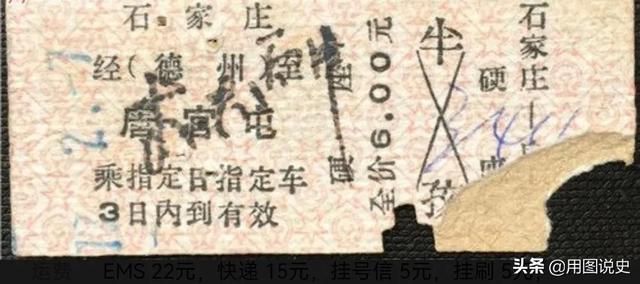 石家庄
经(德州)至
唐官屯
乘指定日指定车
3日内到有效
硬座
全价6.00元
半
孩
石家庄—
硬座
2.7
运费 EMS 22元，快递 15元，挂号信 5元，挂刷 5元，
头条 @用图说史